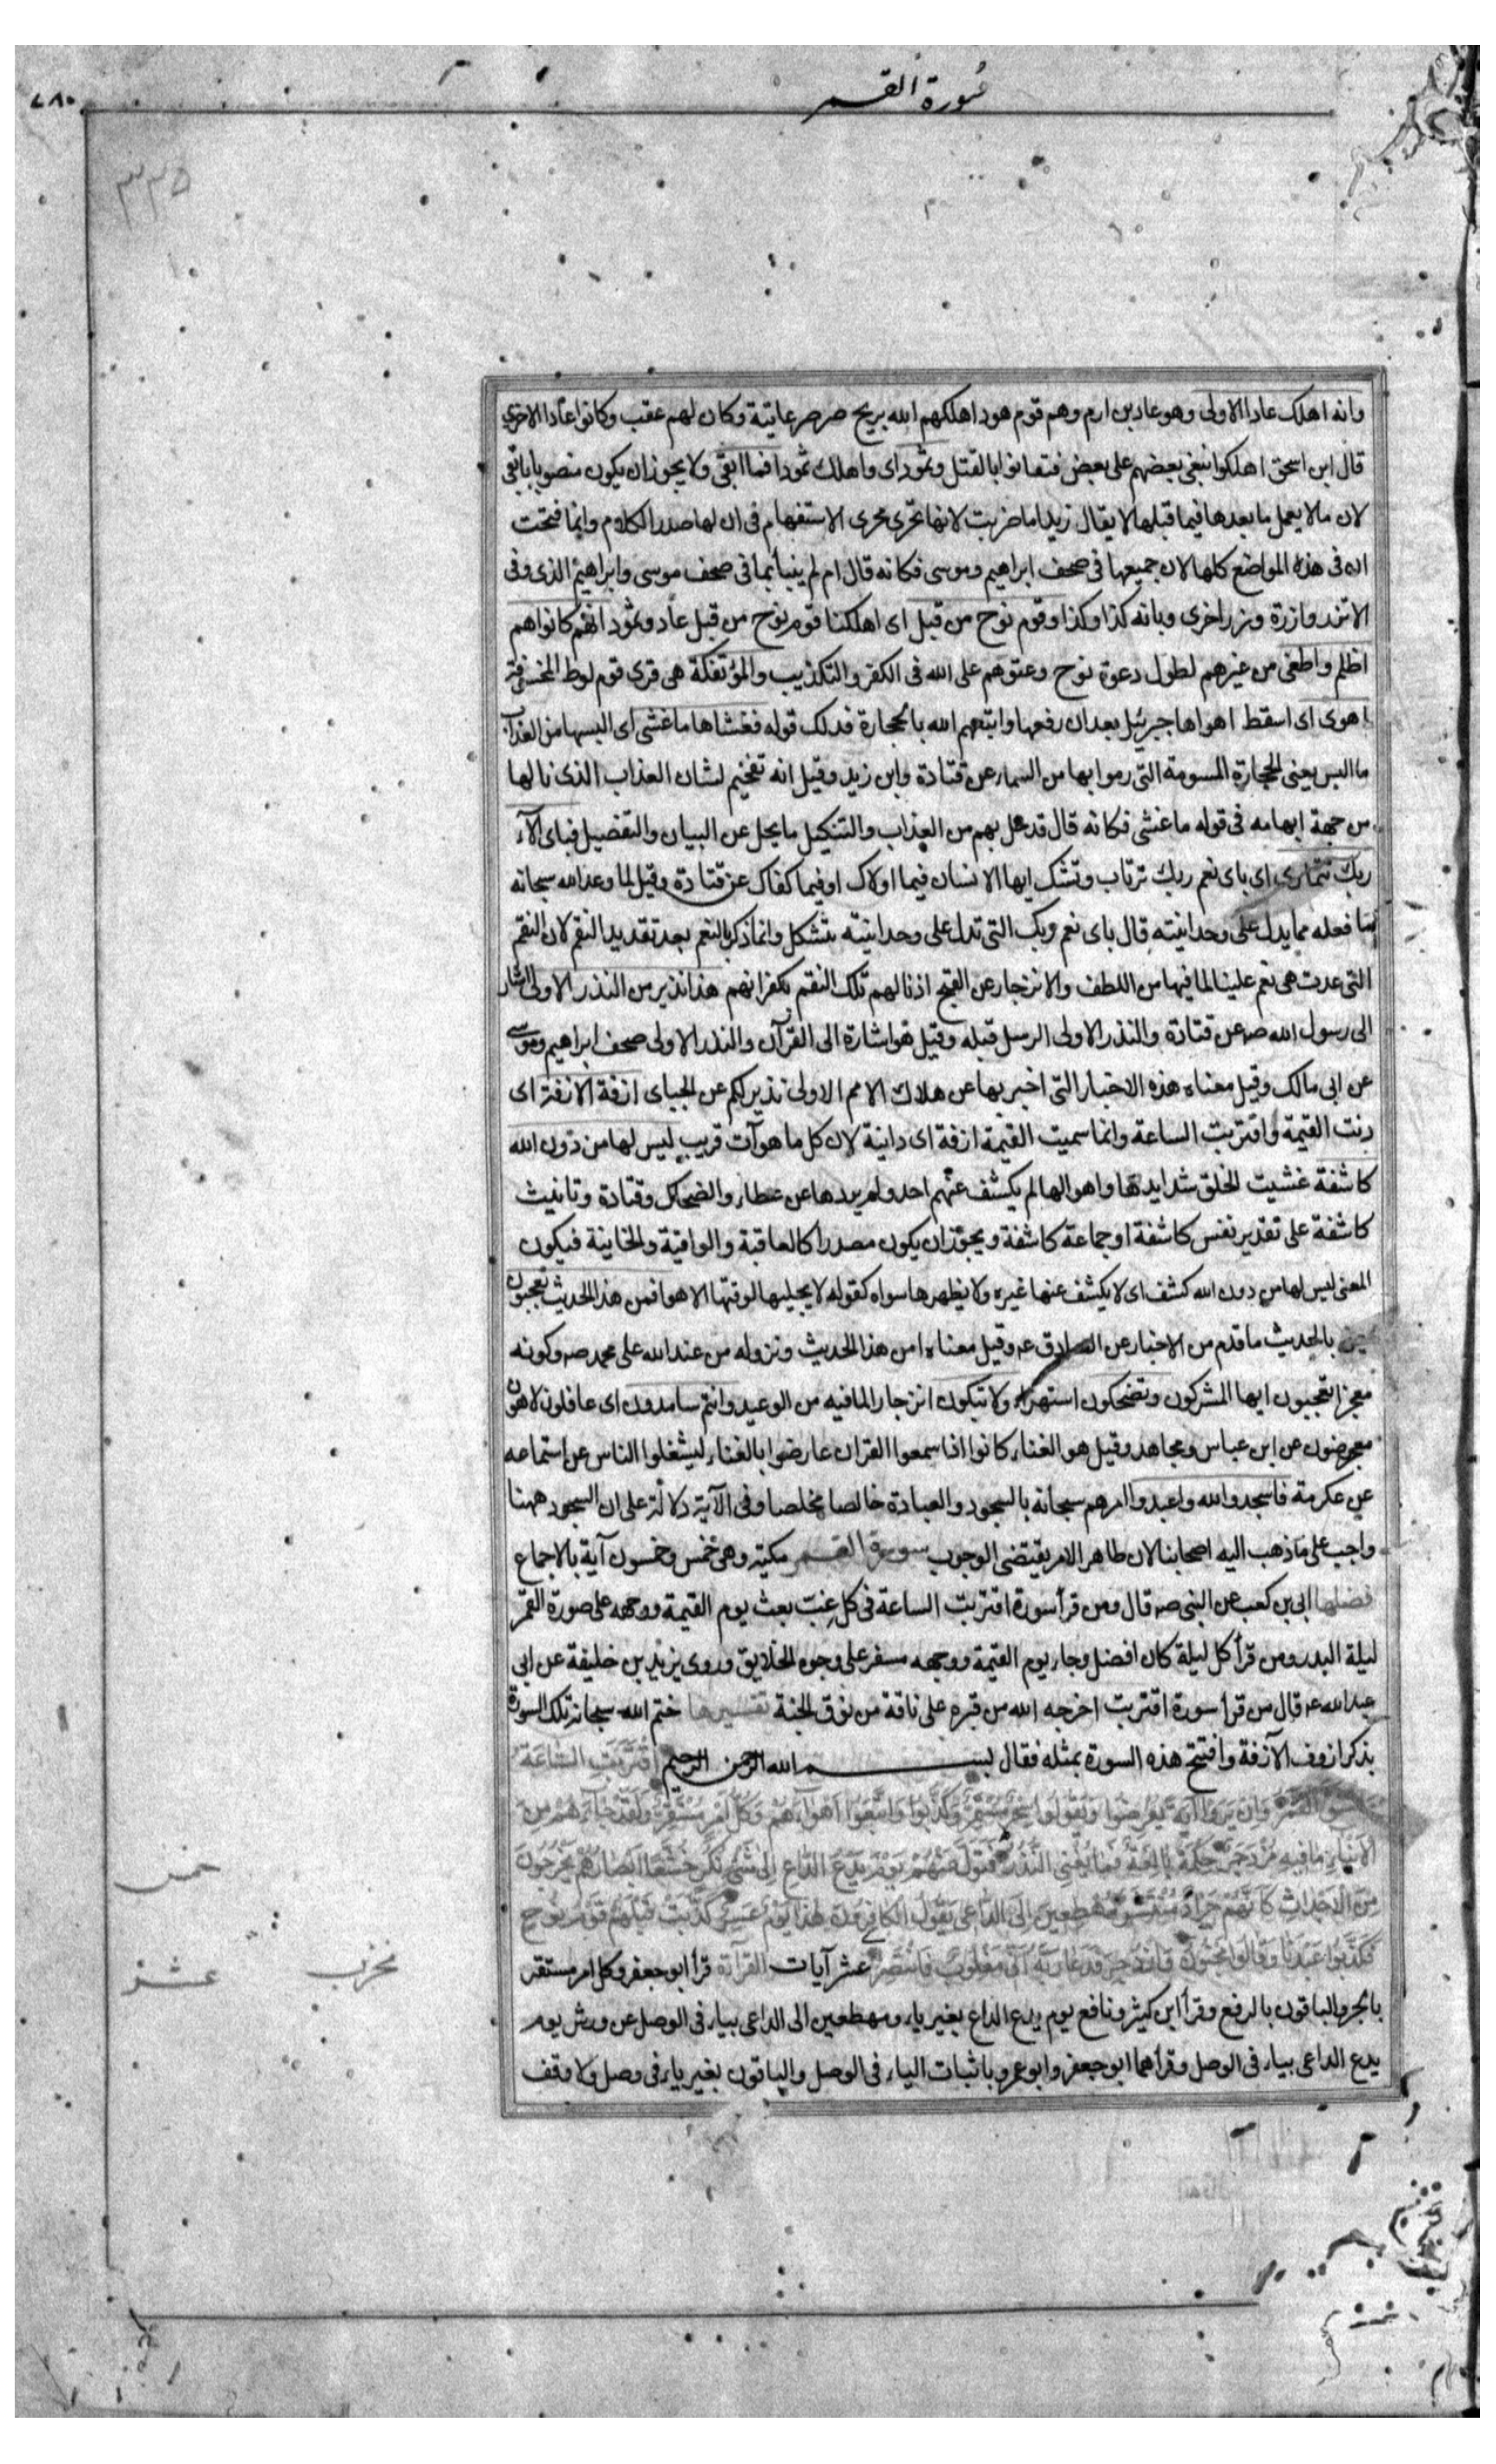 سورة القمر
٧٨٠
٣٣٥
وانه اهلك عادا الاولى وهو عاد بن ارم وهم قوم هود اهلكهم الله بريح صرصر عاتية وكان لهم عقب وكانوا عادا الاخرى
قال ابن اسحق اهلكوا ببغى بعضهم على بعض فتفانوا بالقتل وثمود اى واهلك ثمودا فما ابقى ولا يجوز ان يكون منصوبا بابقى
لان ما لا يعمل ما بعدها فيما قبلها لا يقال زيدا ما ضربت لانها تجرى مجرى الاستفهام فى ان لها صدر الكلام وانما فتحت
ان فى هذه المواضع كلها لان جميعها فى صحف ابراهيم وموسى فكانه قال ام لم ينبأ بما فى صحف موسى وابراهيم الذى وفى
الا تزر وازرة وزر اخرى وبانه كذا وكذا وقوم نوح من قبل اى اهلكنا قوم نوح من قبل عاد وثمود انهم كانوا هم
اظلم واطغى من غيرهم لطول دعوة نوح وعتوهم على الله فى الكفر والتكذيب والمؤتفكة هى قرى قوم لوط المخسفة
اهوى اى اسقط اهواها جبرئيل بعد ان رفعها واتبعهم الله بالحجارة فذلك قوله فغشاها ما غشى اى البسها من العذاب
ما البس يعنى الحجارة المسومة التى رموا بها من السماء عن قتادة وابن زيد وقيل انه تفخيم لشان العذاب الذى نالها
من جهة ابهامه فى قوله ما غشى فكانه قال قد حل بهم من العذاب والتنكيل ما يجل عن البيان والتفصيل فباى آلاء
ربك تتمارى اى باى نعم ربك ترتاب وتشك ايها الانسان فيما اولاك او فيما كفاك عن قتادة وقيل لما وعد الله سبحانه
ما فعله مما يدل على وحدانيته قال باى نعم ربك التى تدل على وحدانيته تتشكك وانما ذكر بالنعم بعد تقديد النقم لان النقم
التى عدت هى نعم علينا لما فيها من اللطف والانزجار عن القبيح اذ نالهم تلك النقم بكفرانهم هذا نذير من النذر الاولى اشار
الى رسول الله صه عن قتادة والنذر الاولى الرسل قبله وقيل هو اشارة الى القرآن والنذر الاولى صحف ابراهيم وموسى
عن ابى مالك وقيل معناه هذه الاخبار التى اخبر بها عن هلاك الامم الاولى نذير لكم عن الجباى ازفة الازفة اى
دنت القيمة واقتربت الساعة وانما سميت القيمة ازفة اى دانية لان كل ما هو آت قريب ليس لها من دون الله
كاشفة غشيت الخلق شدايدها واهوالها لم يكشف عنهم احد ولم يردها عن عطاء والضحاك وقتادة وتانيث
كاشفة على تقدير نفس كاشفة او جماعة كاشفة ويجوز ان يكون مصدرا كالعاقبة والواقية والخاينة فيكون
المعنى ليس لها من دون الله كشف اى لا يكشف عنها غيره ولا يظهرها سواه كقوله لا يجليها لوقتها الا هو افمن هذا الحديث تعجبون
بالحديث ما قدم من الاخبار عن الصادق عه وقيل معناه امن هذا الحديث ونزوله من عند الله على محمد صه وكونه
معجزا تعجبون ايها المشركون وتضحكون استهزاء ولا تبكون انزجارا لما فيه من الوعيد وانتم سامدون اى غافلون لاهون
معرضون عن ابن عباس ومجاهد وقيل هو الغناء كانوا اذا سمعوا القران عارضوا بالغناء ليشغلوا الناس عن استماعه
عن عكرمة فاسجدوا لله واعبدوا امرهم سبحانه بالسجود والعبادة خالصا مخلصا وفى الآية دلالة على ان السجود ههنا
واجب على ما ذهب اليه اصحابنا لان ظاهر الامر يقتضى الوجوب سورة القمر مكية وهى خمس وخمسون آية بالاجماع
فضلها ابى بن كعب عن النبى صه قال ومن قرأ سورة اقتربت الساعة فى كل غب بعث يوم القيمة ووجهه على صورة القمر
ليلة البدر ومن قرأ كل ليلة كان افضل وجاء يوم القيمة ووجهه مسفر على وجوه الخلايق وروى يزيد بن خليفة عن ابى
عبد الله عه قال من قرأ سورة اقتربت اخرجه الله من قبره على ناقة من نوق الجنة تفسيرها ختم الله سبحانه تلك السورة
بذكر ازوف الآزفة وافتتح هذه السورة بمثله فقال بسم الله الرحمن الرحيم اقْتَرَبَتِ السَّاعَةُ
وَانْشَقَّ الْقَمَرُ وَاِنْ يَرَوْا آيَةً يُعْرِضُوا وَيَقُولُوا سِحْرٌ مُسْتَمِرٌّ وَكَذَّبُوا وَاتَّبَعُوا اَهْوَاءَهُمْ وَكُلُّ اَمْرٍ مُسْتَقِرٌّ وَلَقَدْ جَاءَهُمْ مِنَ
الْاَنْبَاءِ مَا فِيهِ مُزْدَجَرٌ حِكْمَةٌ بَالِغَةٌ فَمَا تُغْنِى النُّذُرُ فَتَوَلَّ عَنْهُمْ يَوْمَ يَدْعُ الدَّاعِ اِلَى شَىْءٍ نُكُرٍ خُشَّعًا اَبْصَارُهُمْ يَخْرُجُونَ
مِنَ الْاَجْدَاثِ كَاَنَّهُمْ جَرَادٌ مُنْتَشِرٌ مُهْطِعِينَ اِلَى الدَّاعِى يَقُولُ الْكَافِرُونَ هٰذَا يَوْمٌ عَسِرٌ كَذَّبَتْ قَبْلَهُمْ قَوْمُ نُوحٍ
فَكَذَّبُوا عَبْدَنَا وَقَالُوا مَجْنُونٌ وَازْدُجِرَ فَدَعَا رَبَّهُ اَنِّى مَغْلُوبٌ فَانْتَصِرْ عشر آيات القراءة قرأ ابو جعفر وكل امر مستقر
بالجر والباقون بالرفع وقرأ ابن كثير ونافع يوم يدع الداع بغير ياء ومهطعين الى الداعى بياء فى الوصل عن ورش يوم
يدع الداعى بياء فى الوصل وقرأهما ابو جعفر وابو عمرو باثبات الياء فى الوصل والباقون بغير ياء فى وصل ولا وقف
خمس
عشر